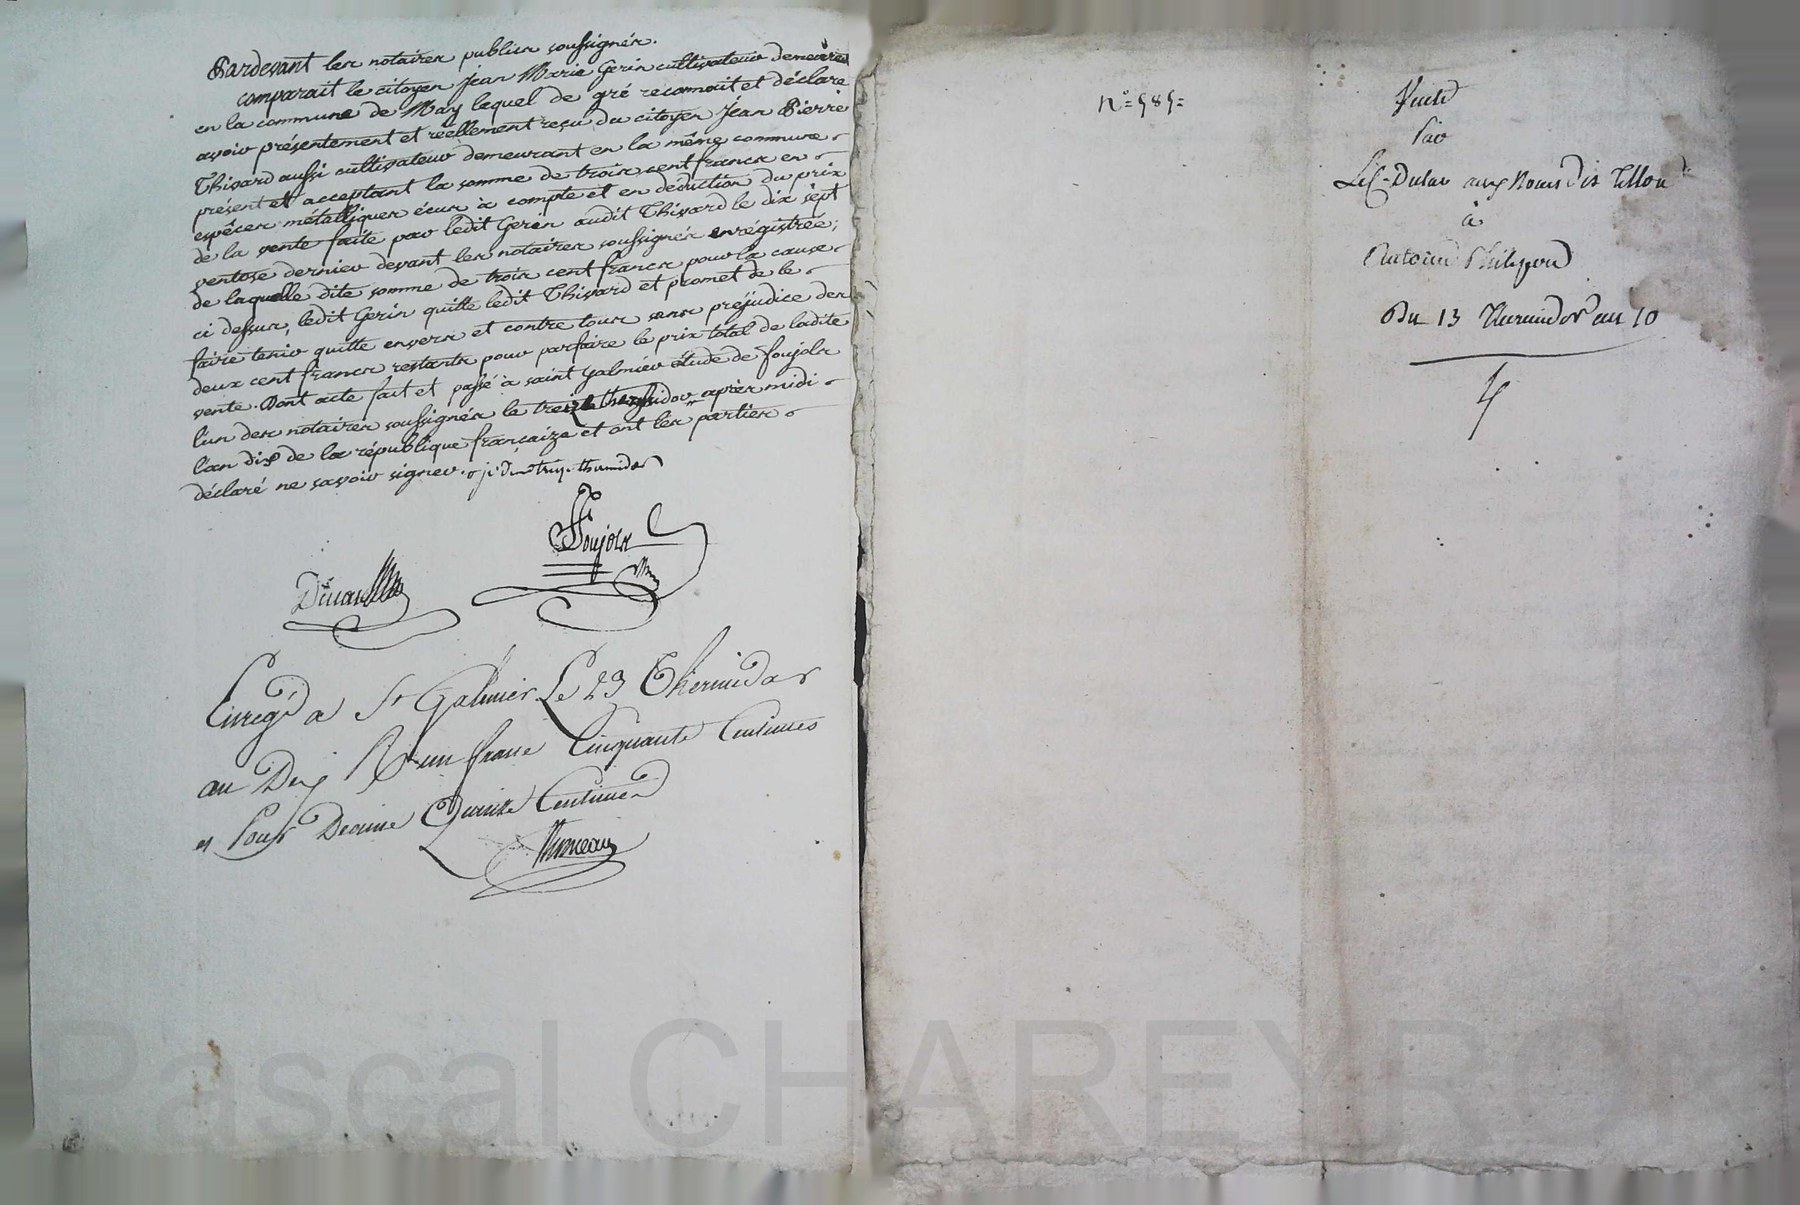 Pardevant les notaires publics soussignés.
comparait le citoyen Jean Marie Gerin cultivateur demeurant
en la commune de May lequel de gré reconnoit et déclare
avoir présentement et réellement reçu du citoyen Jean Pierre
Thivard aussi cultivateur demeurant en la même commune
présent et acceptant la somme de trois cent francs en
espèces métalliques écus à compte et en déduction du prix
de la vente faite par ledit Gerin audit Thivard le dix sept
ventose dernier devant les notaires soussignés enrégistrée;
de laquelle dite somme de trois cent francs pour la cause
ci dessus, ledit Gerin quitte ledit Thivard et promet de le
faire tenir quitte envers et contre tous sans préjudice des
deux cent francs restants pour parfaire le prix total de ladite
vente. Dont acte fait et passé à saint Galmier étude de Foujols
l'un des notaires soussignés le treize thermidor après midi
l'an dix de la république française et ont les parties
déclaré ne savoir signer. thermidor
Foujols
Enregé a St Galmier Le 23 Thermidor
an Dix R un franc Cinquante Centimes
et Pour Decime Quinze Centimes
N° 585
Vente
Par
à
Antoine Philipon
Du 13 Thermidor an 10
Pascal CHAREYRON